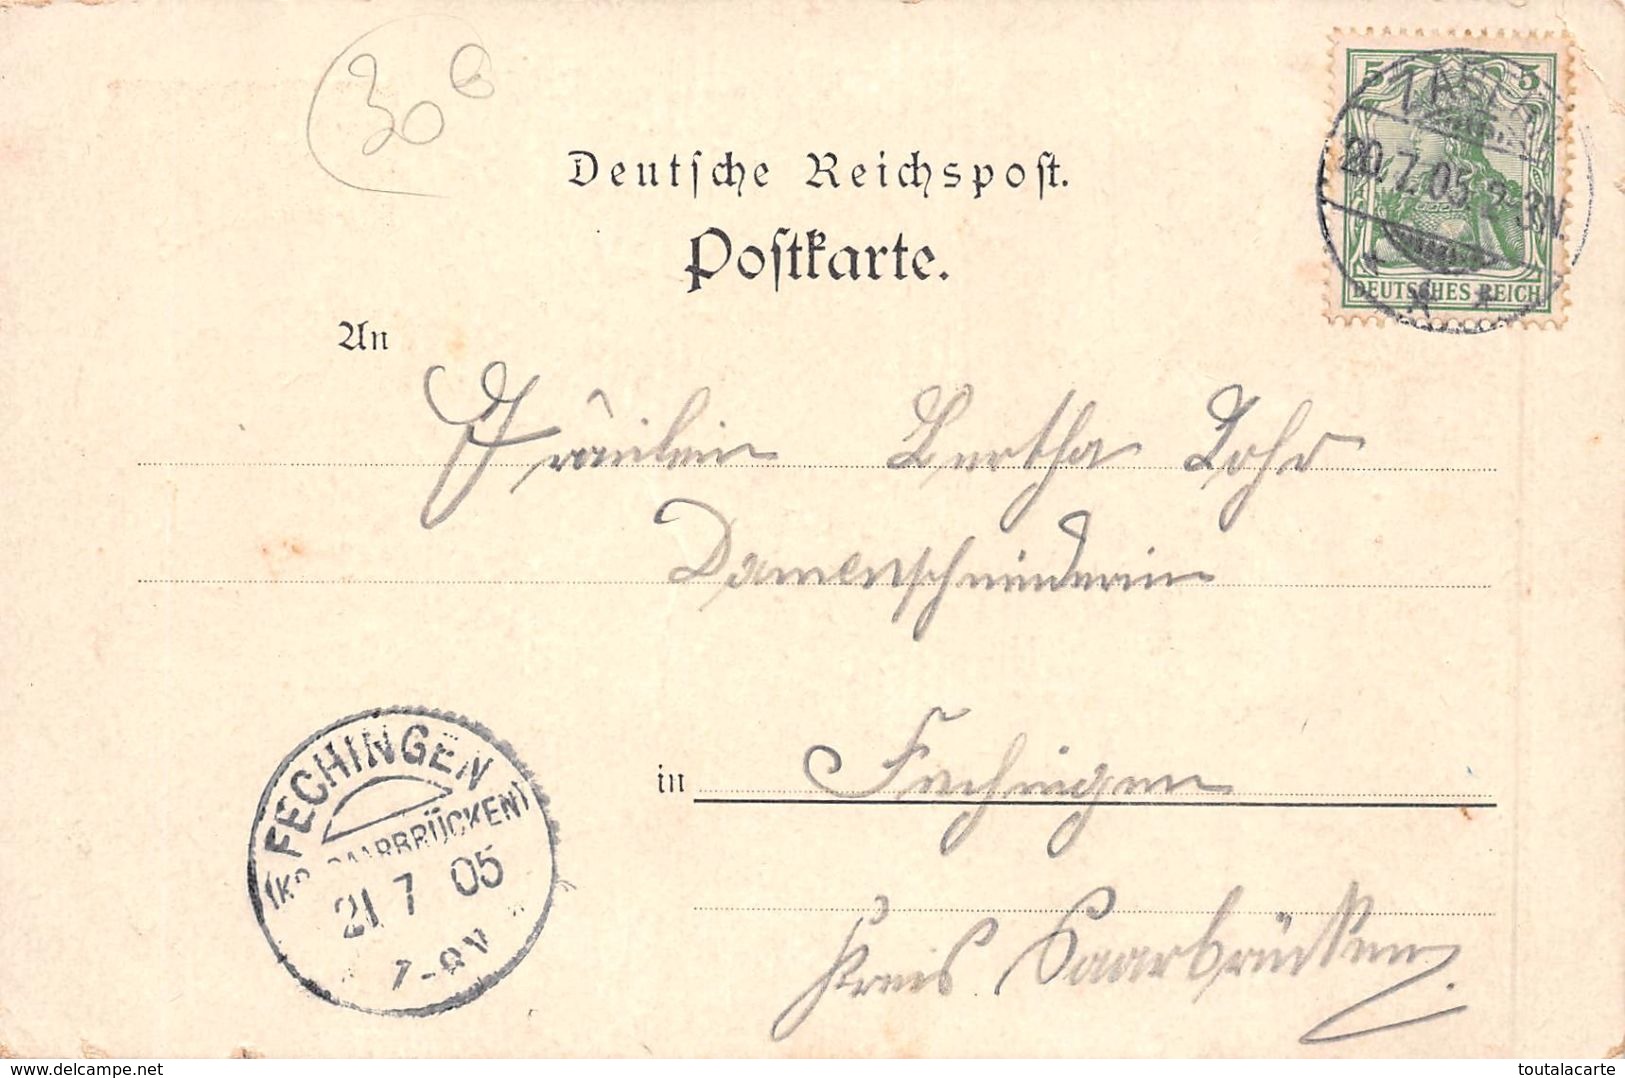 30 6
Deutsche Reichspost.
Postkarte.
5 5
ZABERN
20.7.05.2-3N.
DEUTSCHES REICH
An
Fräulein Bertha Lohr
Damenschneiderin
in Fechingen
Kreis Saarbrücken.
FECHINGEN
(KR. SAARBRÜCKEN)
21 7 05
7-8V
delcampe.net
toutalacarte